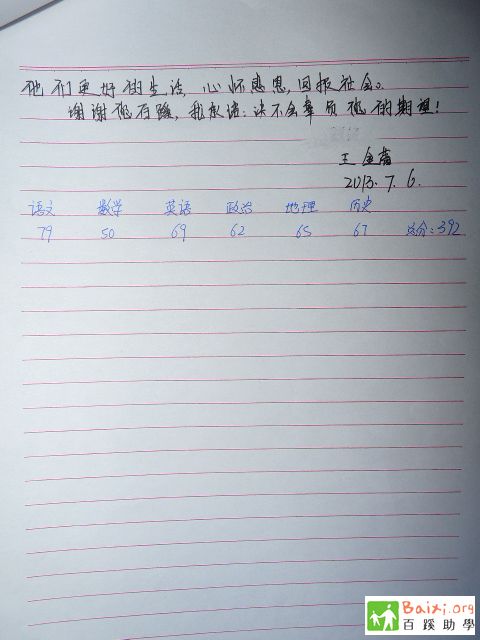 他们更好的生活,心怀感恩,回报社会。
谢谢您石隆,我承诺:决不会辜负您的期望!
王金蕾
2013.7.6.
语文 数学 英语 政治 地理 历史
79 50 69 62 65 67 总分:392
Baixi.org
百蹊助學